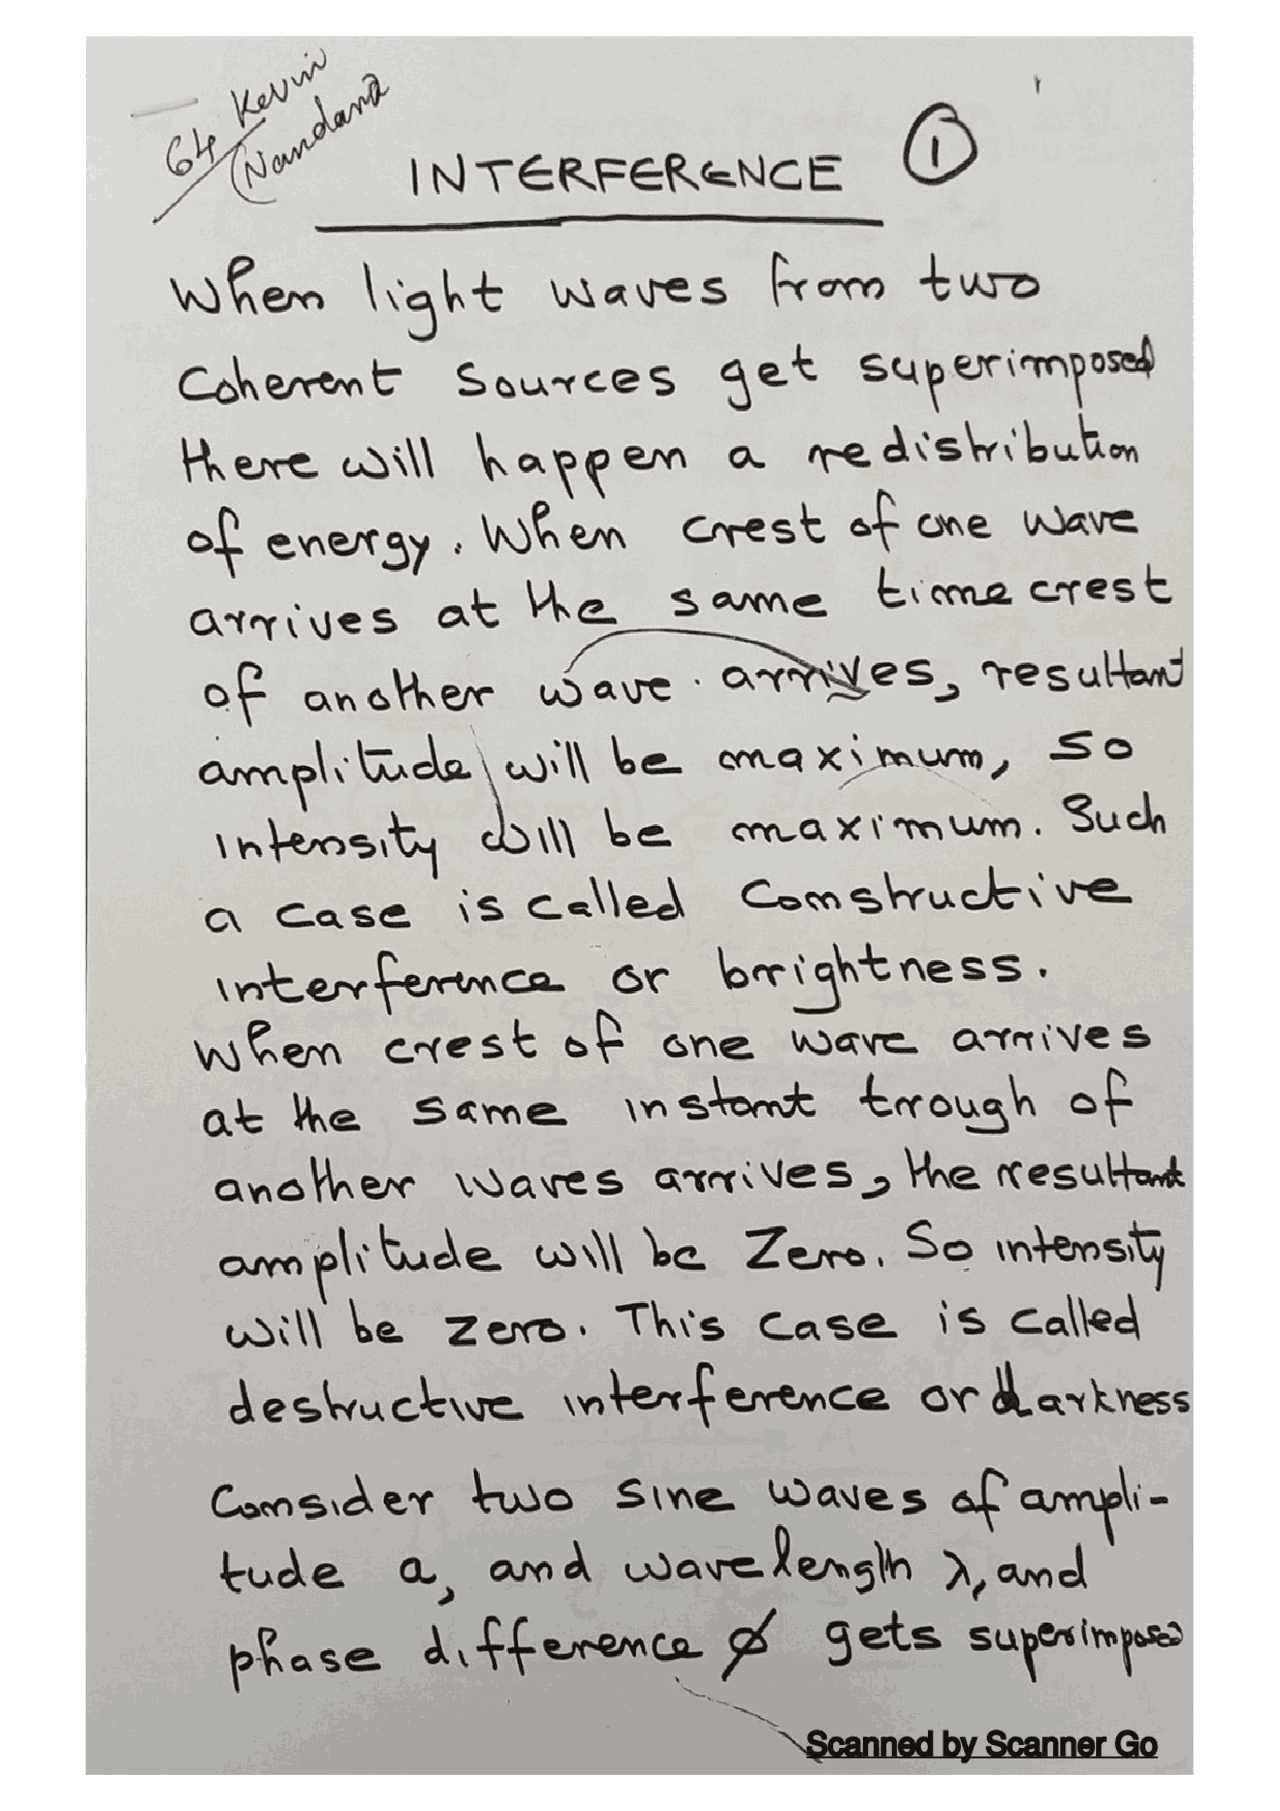 64 Kevin
(Nandana
INTERFERENCE 1
When light waves from two
Coherent Sources get superimposed
there will happen a redistribution
of energy. When crest of one wave
arrives at the same time crest
of another wave. arrives, resultant
amplitude will be maximum, so
intensity will be maximum. Such
a case is called Constructive
interference or brightness.
When crest of one wave arrives
at the same instant trough of
another waves arrives, the resultant
amplitude will be Zero. So intensity
will be zero. This case is called
destructive interference or darkness
Consider two sine waves of ampli-
tude a, and wavelength λ, and
phase difference ϕ gets superimposed
Scanned by Scanner Go